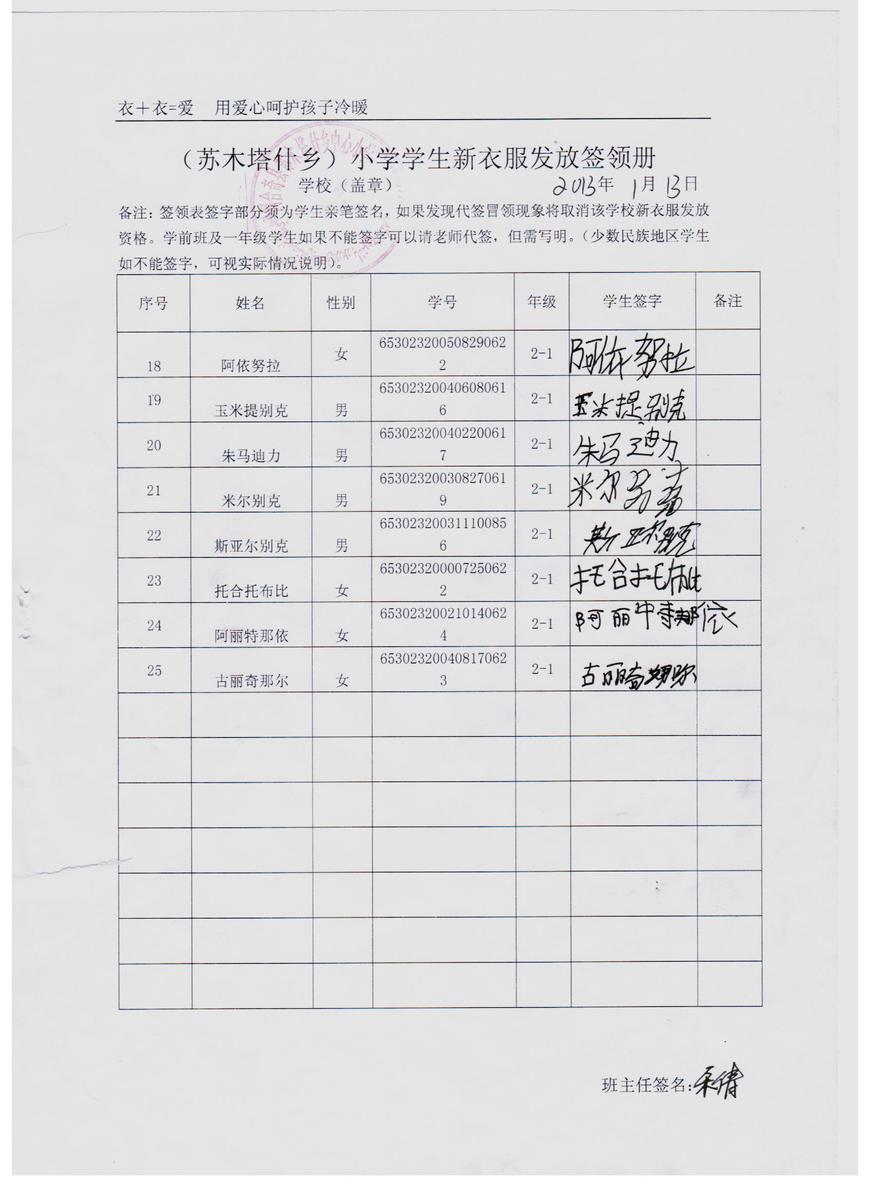 衣+衣=爱 用爱心呵护孩子冷暖
（苏木塔什乡）小学学生新衣服发放签领册
学校（盖章） 2013年 1月 13日
备注：签领表签字部分须为学生亲笔签名，如果发现代签冒领现象将取消该学校新衣服发放
资格。学前班及一年级学生如果不能签字可以请老师代签，但需写明。（少数民族地区学生
如不能签字，可视实际情况说明）。
序号 姓名 性别 学号 年级 学生签字 备注
18 阿依努拉 女 653023200508290622 2-1 阿依努拉
19 玉米提别克 男 653023200406080616 2-1 玉米提别克
20 朱马迪力 男 653023200402200617 2-1 朱马迪力
21 米尔别克 男 653023200308270619 2-1 米尔
22 斯亚尔别克 男 653023200311100856 2-1 斯亚尔别克
23 托合托布比 女 653023200007250622 2-1 托合托布比
24 阿丽特那依 女 653023200210140624 2-1 阿丽特那依
25 古丽奇那尔 女 653023200408170623 2-1 古丽奇那尔
班主任签名：